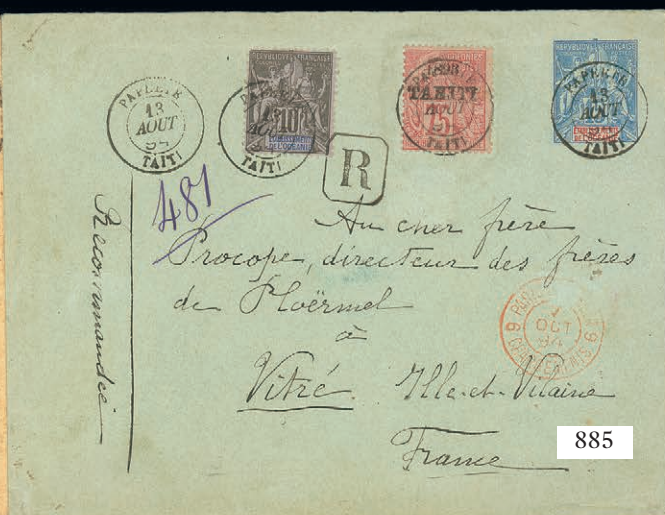 PAPEETE
13
AOUT
94
TAITI
REPUBLIQUE FRANÇAISE
10
ETABLISSEMENTS
DE L'OCEANIE
13
AOUT
TAITI
TAHITI
AOUT
TAITI
REPUBLIQUE FRANÇAISE
PAPEETE
13
AOUT
TAITI
R
481
Recommandée
Au cher frère
Procope, directeur des frères
de Ploërmel
à
Vitré. Ille-et-Vilaine
France
OCT
94
885